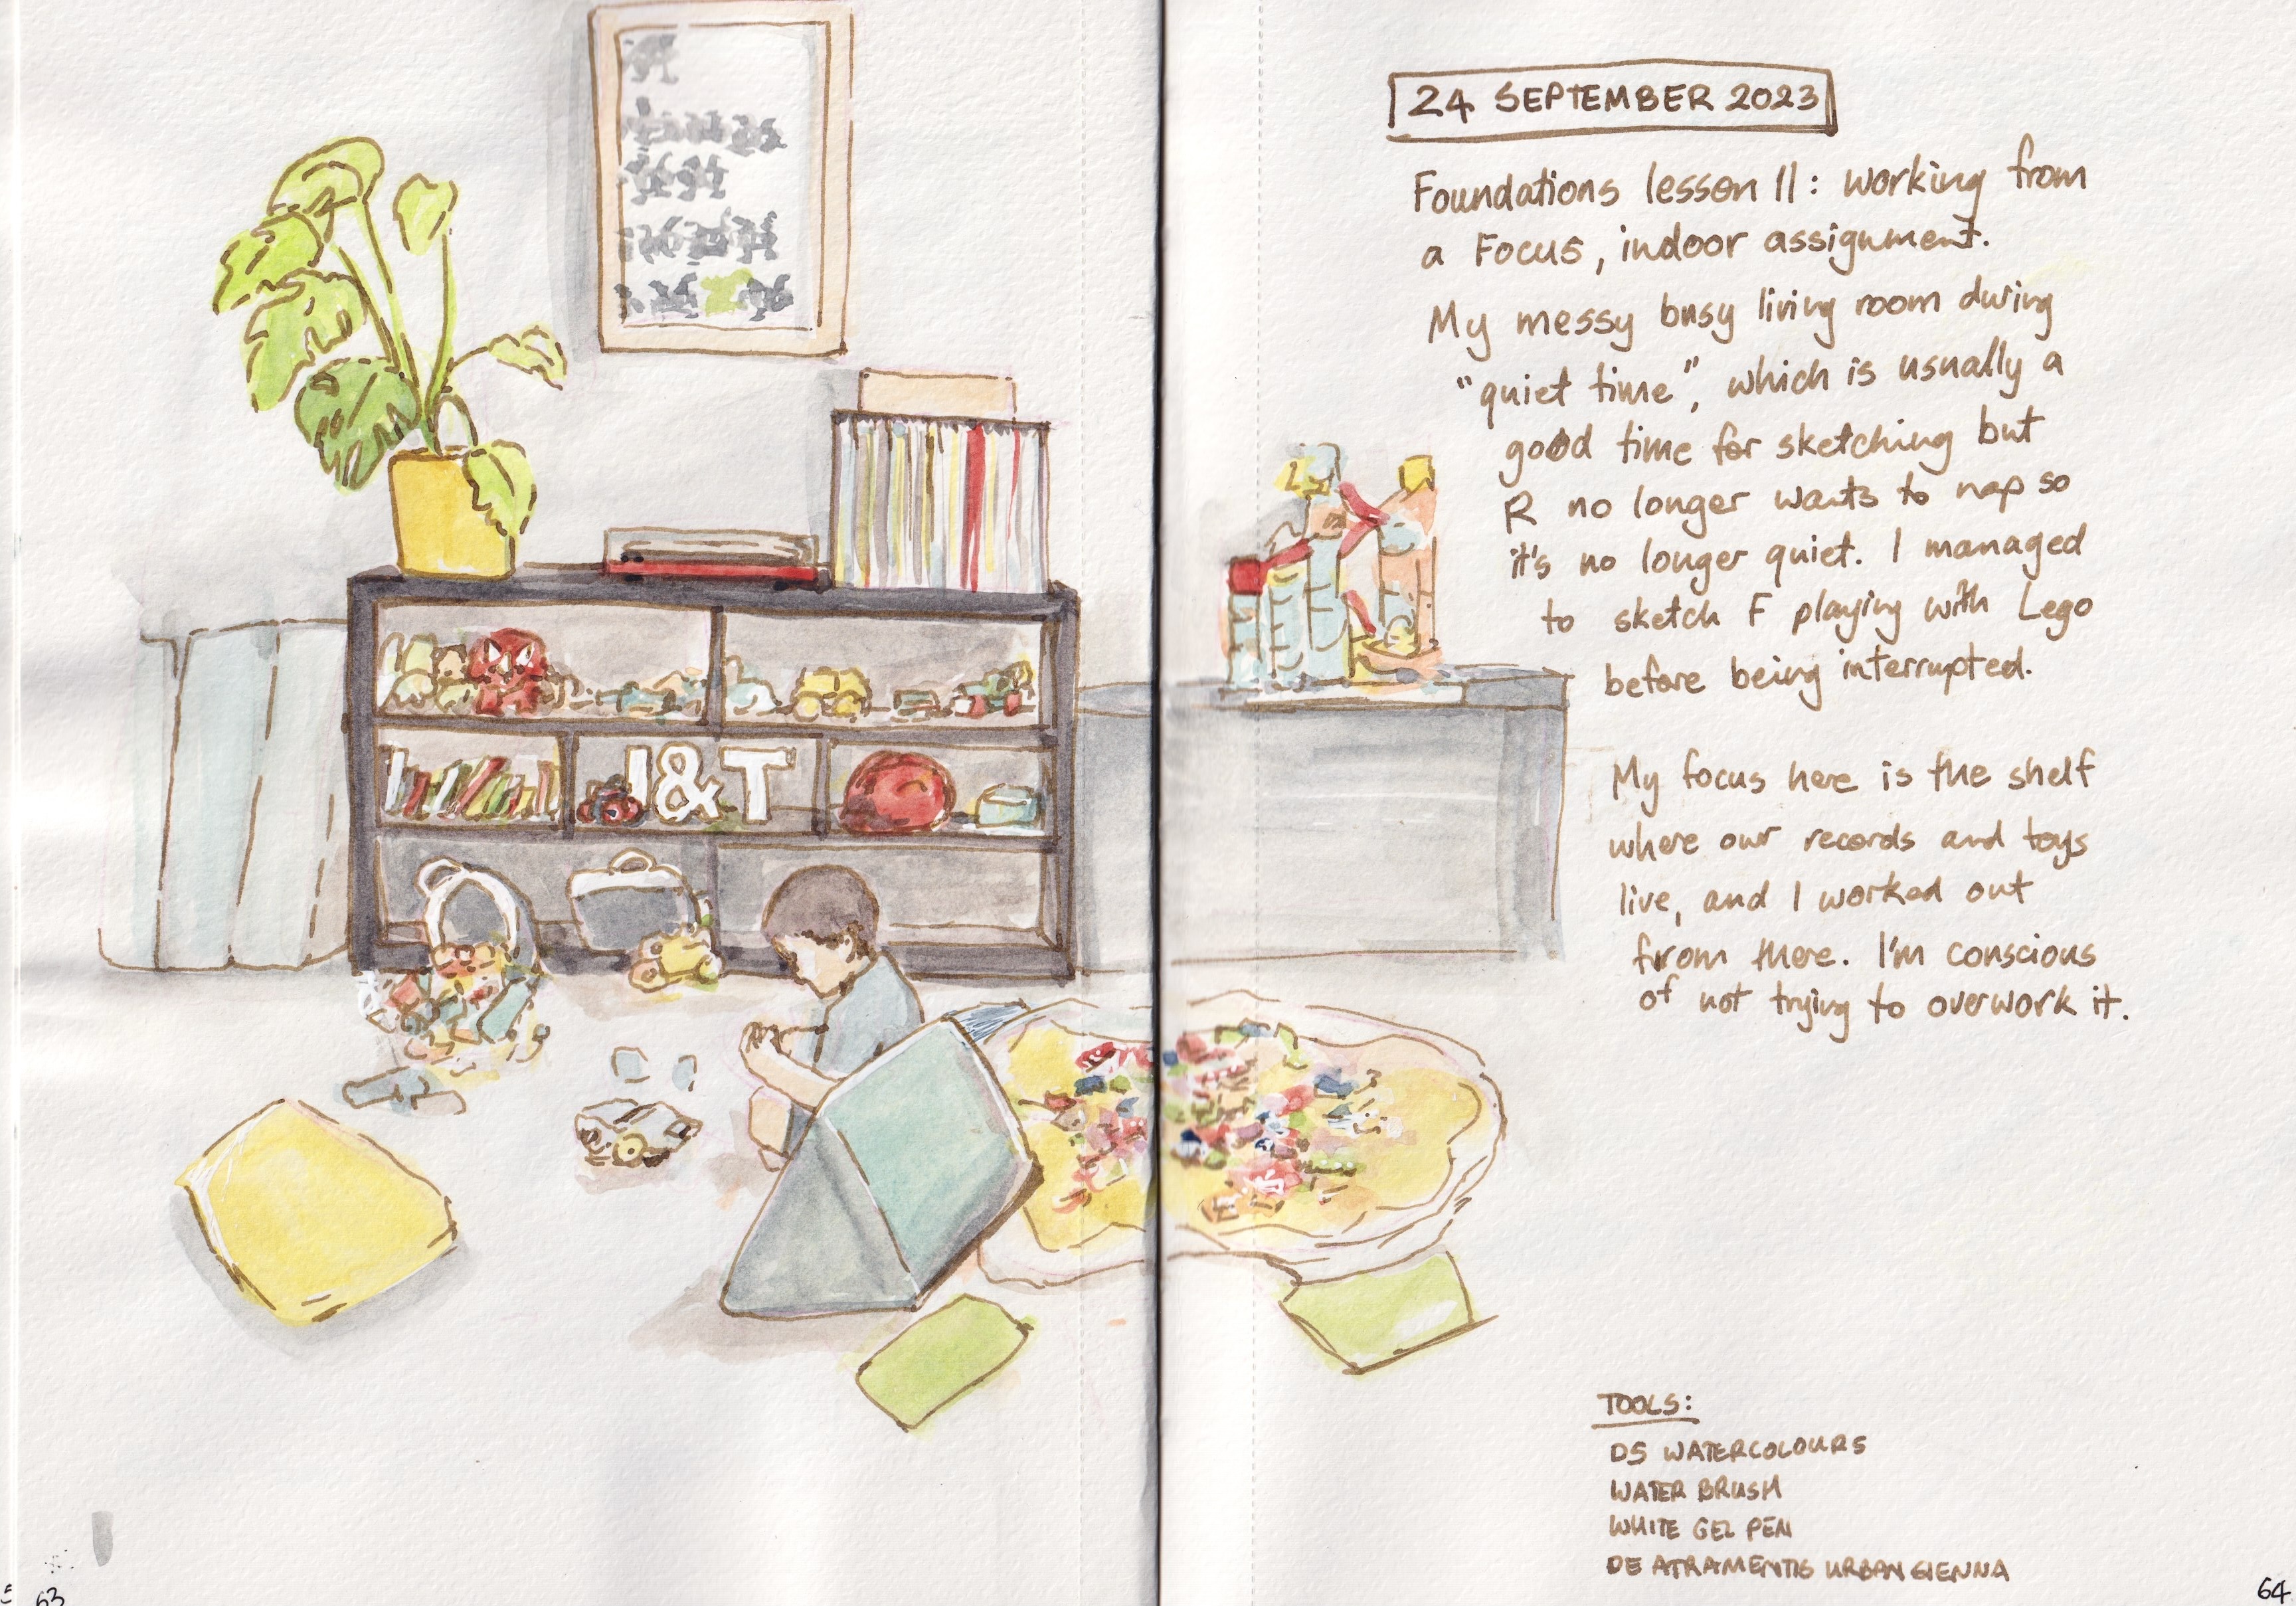 J&T
24 SEPTEMBER 2023
Foundations lesson 11: working from
a Focus, indoor assignment.
My messy busy living room during
"quiet time", which is usually a
good time for sketching but
R no longer wants to nap so
it's no longer quiet. I managed
to sketch F playing with Lego
before being interrupted.
My focus here is the shelf
where our records and toys
live, and I worked out
from there. I'm conscious
of not trying to overwork it.
TOOLS:
DS WATERCOLOURS
WATER BRUSH
WHITE GEL PEN
DE ATRAMENTIS URBAN SIENNA
63
64